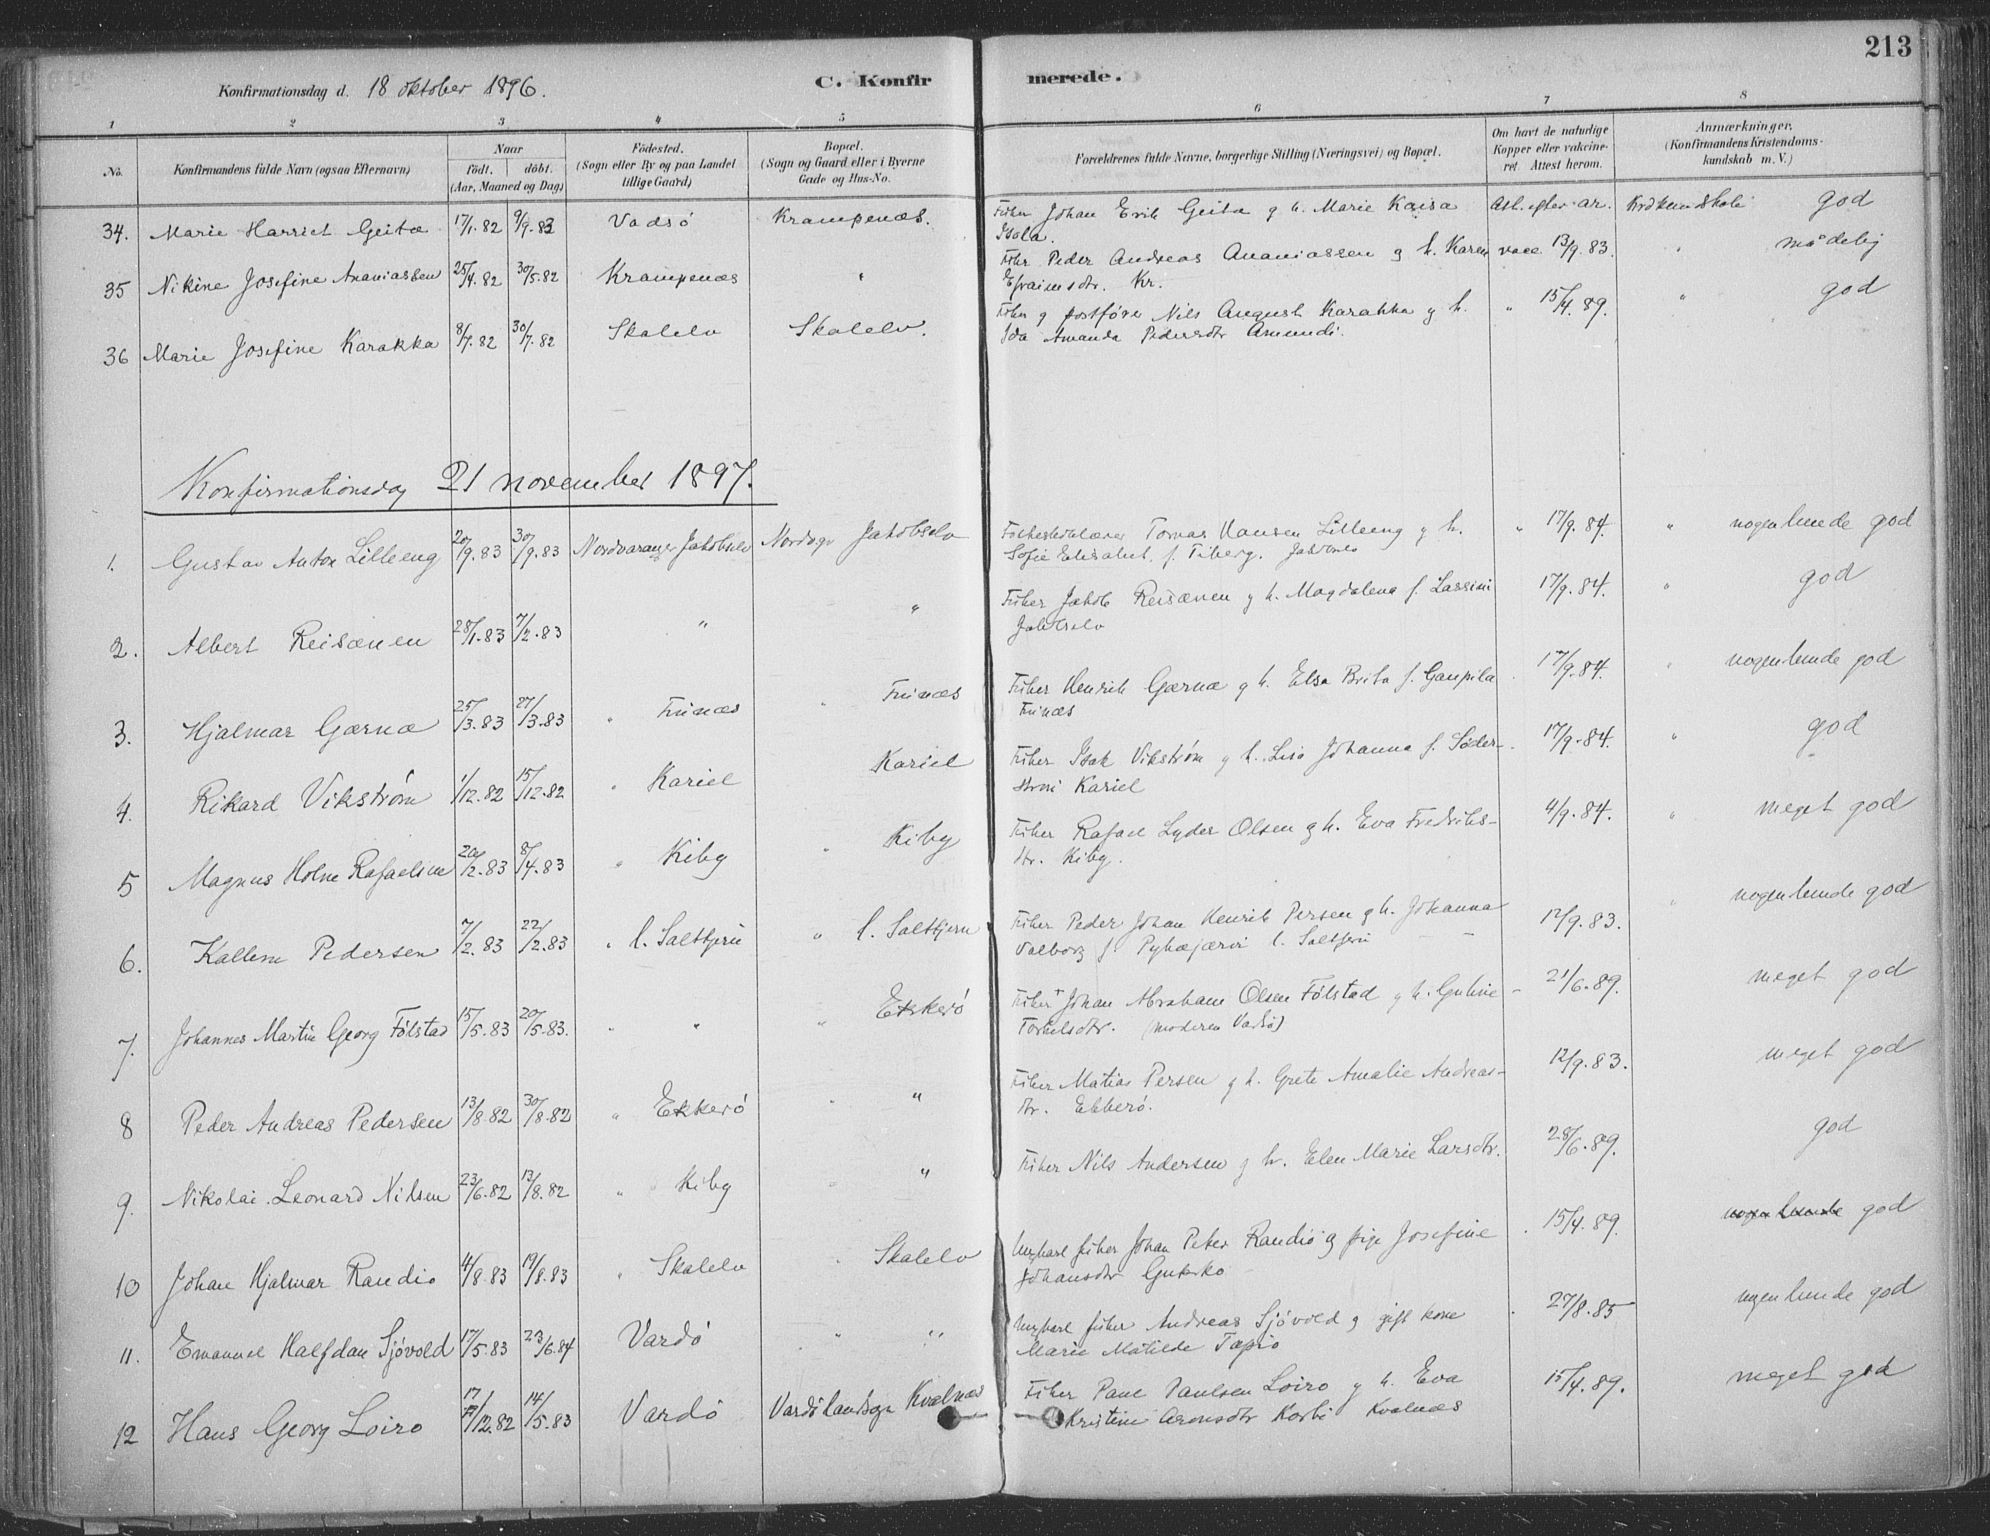 213
Konfirmationsdag d. 18 oktober 1896. C. Konfirmerede.
1 2 3 4 5 6 7 8
No. Konfirmandens fulde Navn (ogsaa Efternavn) Naar født. døbt. (Aar, Maaned og Dag) Fødested. (Sogn eller By og paa Landet tillige Gaard) Bopæl. (Sogn og Gaard eller i Byerne Gade og Hus-No. Forældrenes fulde Navne, borgerlige Stilling (Næringsvei) og Bopæl. Om havt de naturlige Kopper eller vakcineret. Attest herom. Anmærkninger, (Konfirmandens Kristendomskundskab m. V.)
34. Marie Harriet Geita 17/1.82 9/9.83 Vadsö Krampenæs. Fisker Johan Erik Geita g h. Marie Kaisa god
Isola.
35 Nikine Josefine Ananiassen 25/4.82 30/5.82 Krampenæs " Fisker Peder Andreas Ananiassen g h. Karen vacc. 13/9.83. " mådelig
Efraimsdtr. Kr.
36 Marie Josefine Karakka 8/7.82 30/7.82 Skalelv Skalelv. Fisker g postförer Nils August Karakka g h. " 15/4.89. " god
Ida Amanda Pedersdtr
Konfirmationsdag 21 november 1897.
1. Gustav Anton Lilleeng 20/9.83 30/9.83 Nordvaranger Jakobselv Jakobselv Tomas Hansen Lilleeng g h. " 17/9.84. " nogenlunde god
Sofie Elisabet f. Tiberg.
2. Albert Reisænen 28/1.83 7/2.83 " " Fisker Jakob Reisænen g h. Magdalena f. Lassini 17/9.84. " god
Jakobselv
3. Hjalmar Gærnæ 25/3.83 27/3.83 " Finnæs " Finnæs Fisker Henrik Gærnæ g h. Elsa Brita f. Gaupila 17/9.84. " nogenlunde god
Finnæs
4. Rikard Vikstrøm 1/12.82 15/12.82 " Kariel Kariel Fisker Isak Vikstrøm g h. Lisa Johanna f. Söder- 17/9.84. " god
strøm Kariel
5 Magnus Holm Rafaelsen 20/2.83 8/4.83 " Kiby " Kiby Fisker Rafael Lyder Olsen g h. Eva Fredriks- 4/9.84. " meget god
dtr. Kiby.
6. Kallem Pedersen 7/2.83 22/2.83 " l. Saltfjern " l. Saltfjern Fisker Peder Johan Henrik Persen g h. Johanna 12/9.83. " nogenlunde god
Valborg f. Pyhæjærvi l. Saltfjern
7. Johannes Martin Georg Følstad 15/5.83 20/5.83. " " " Ekkerö Fisker Johan Abraham Olsen Følstad g h. 21/6.89. meget god
(moderen Vadsø)
8 Peder Andreas Pedersen 13/8.82 30/8.82 " Ekkerö " " Fisker Matias Persen g h. Grete Amalie Andreas- 12/9.83. meget god
dtr. Ekkerö.
9. Nikolai Leonard Nilsen 23/6.82 13/8.82 " Kiby " " Fisker Nils Andersen g h. Elen Marie Larsdtr. 28/6.89. god
10 Johan Hjalmar Randio 4/8.83 19/8.83 " Skalelv " Skalelv Ungkarl fisker Johan Peter Randio g pige Josefine 15/4.89. nogenlunde god
Johansdtr
11. Emanuel Halfdan Sjövold 17/5.83 23/6.84 Vardö " " Ungkarl fisker Andreas Sjövold g gift kone 27/8.85 nogenlunde god
Marie Matilde Tapio
12 Hans Georg Loiro 17/12.82 14/5.83 Vardö Vardö landsogn Kvalnæs Fisker Paul Paulsen Loiro g h. Eva 15/4.89. meget god
Kristine Aronsdtr Korbi Kvalnæs